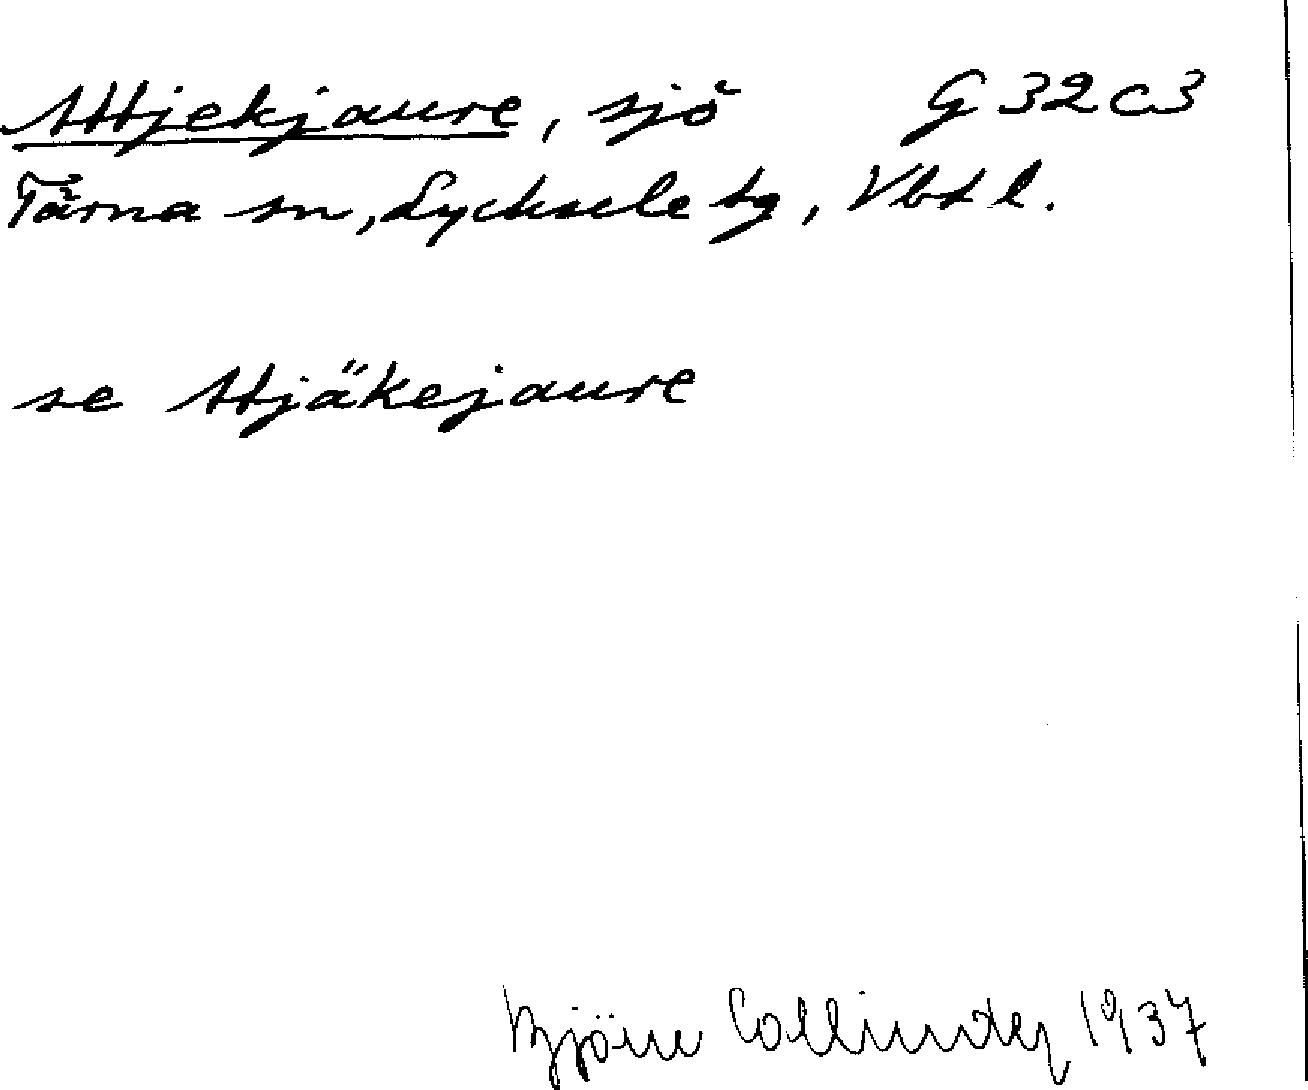 Attjekjaure, sjö G 32 c 3
Tärna sn, Lycksele tg, Vbt l.
se Atjäkejaure
Björn Collinder 1937